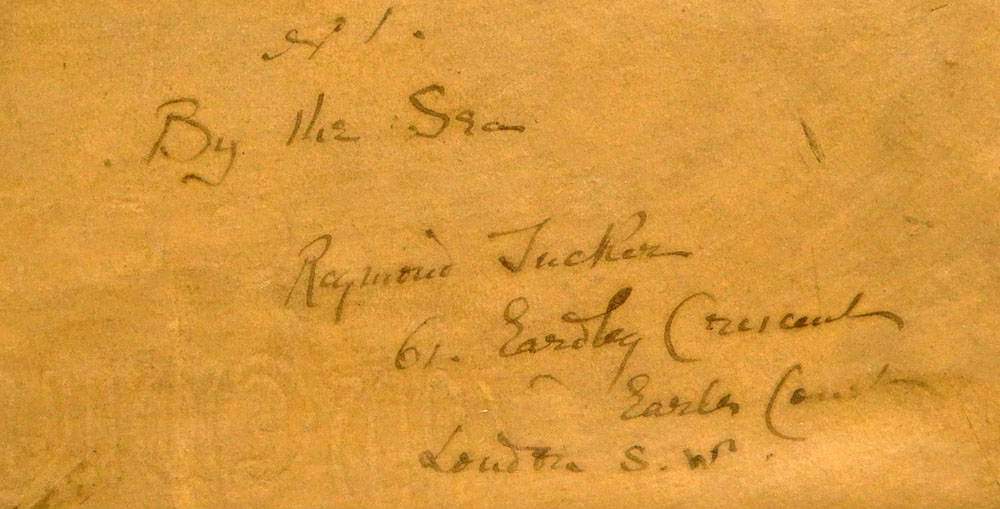 No 1.
By the Sea
Raymond Tucker
61. Eardley Crescent
Earles Court
London S.W.